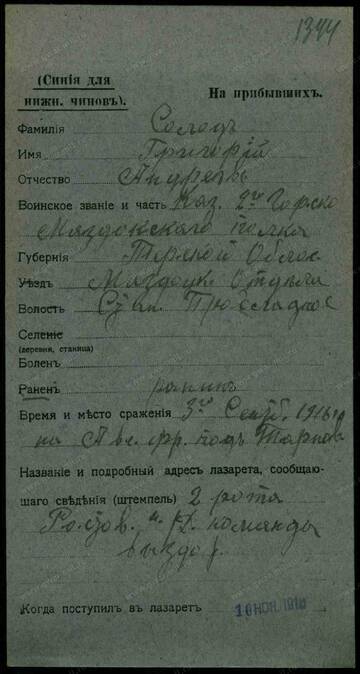 1344
(Синія для
нижн. чиновъ).
На прибывшихъ.
Фамилія Солодъ
Имя Григорій
Отчество Андреевъ
Воинское званіе и часть Каз. 2го Горско
Моздокскаго полка
Губернія Терской Облас
Уѣздъ Моздокск Отдѣла
Волость Стан.
Селеніе
(деревня, станица)
Боленъ
Раненъ раненъ
Время и мѣсто сраженія 3го Сентб. 1916 г
на Авс. фр. подъ
Названіе и подробный адресъ лазарета, сообщаю-
щаго свѣдѣнія (штемпель) 2 рота
Ростов. н/Д. команды
выздор.
Когда поступилъ въ лазаретъ 10 НОЯ. 1916